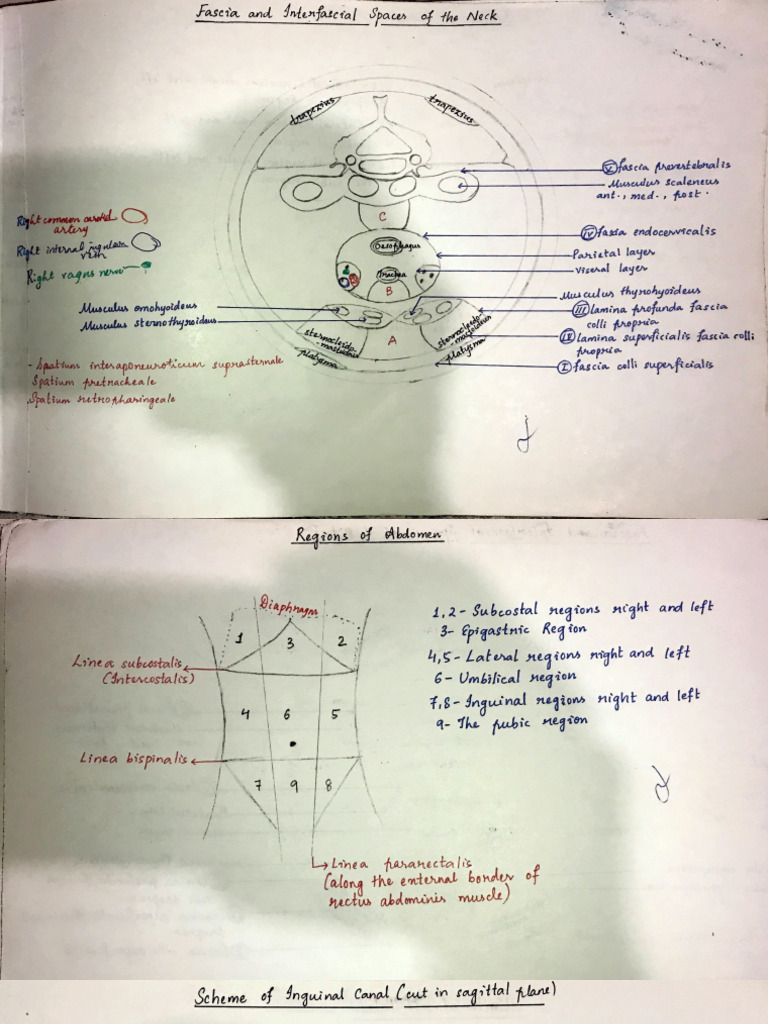 Fascia and Interfascial Spaces of the Neck
trapezius
trapezius
V fascia prevertebralis
Musculus scaleneus
ant., med., post.
C
Right common carotid
artery
Right internal jugular
vein
Right vagus nerve
IV fascia endocervicalis
Oesophagus
Parietal layer
visceral layer
Trachea
B
Musculus thyrohyoideus
Musculus omohyoideus
Musculus sternothyroideus
III lamina profunda fascia
colli propria
sternocleido-
mastoideus
A
sternocleido-
mastoideus
II lamina superficialis fascia colli
propria
platysma
platysma
I fascia colli superficialis
- Spatium interaponeuroticum suprasternale
Spatium pretracheale
Spatium retropharingeale
Regions of Abdomen
Diaphragm
1
3
2
1,2- Subcostal regions right and left
3- Epigastric Region
4,5- Lateral regions right and left
6- Umbilical region
7,8- Inguinal regions right and left
9- The pubic region
Linea subcostalis
(Intercostalis)
4
6
5
Linea bispinalis
7
9
8
Linea pararectalis
(along the external border of
rectus abdominis muscle)
Scheme of Inguinal Canal (cut in sagittal plane)